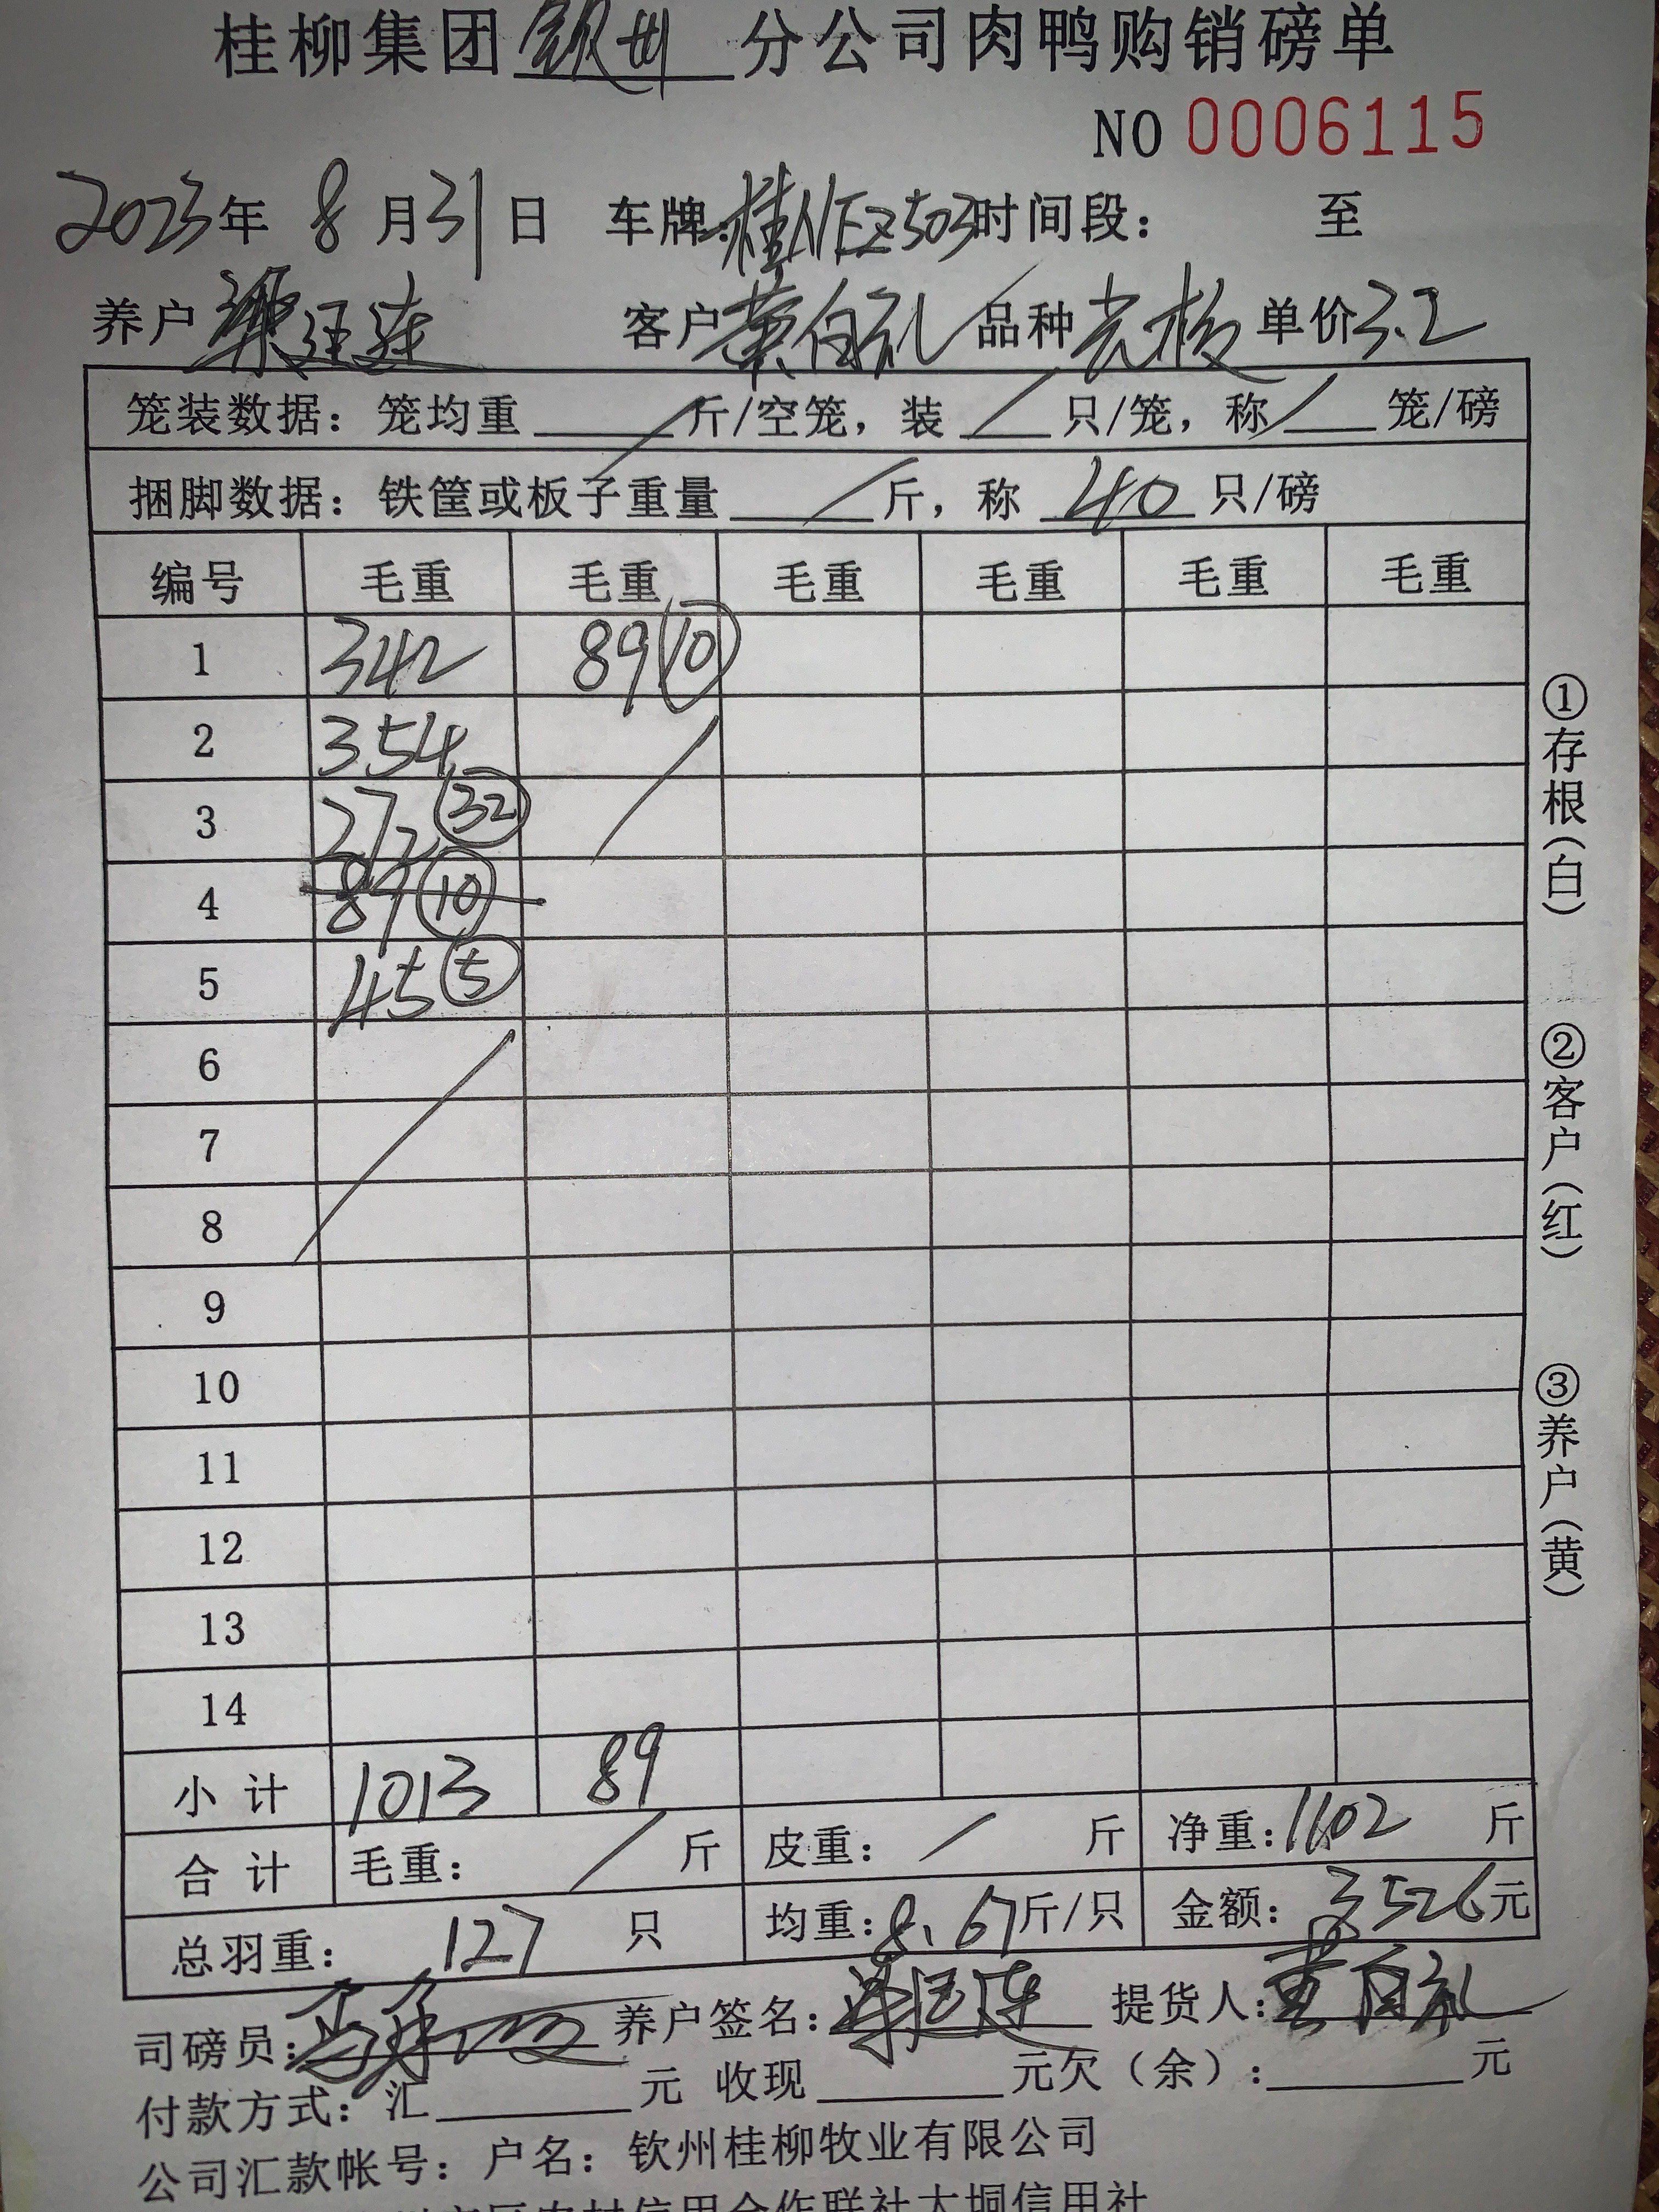 桂柳集团钦州分公司肉鸭购销磅单
NO 0006115
2023年 8月31日 车牌:桂NEZ503时间段: 至
养户 客户黄自礼 品种 单价3.2
笼装数据: 笼均重 / 斤/空笼, 装 / 只/笼, 称 / 笼/磅
捆脚数据: 铁筐或板子重量 / 斤, 称 40 只/磅
编号 毛重 毛重 毛重 毛重 毛重 毛重
1 342 89 ⑩
2 354
3 272 ㉜
4 89 ⑩
5 45 ⑤
6
7
8
9
10
11
12
13
14
小计 1013 89
合计 毛重: / 斤 皮重: / 斤 净重:1102 斤
总羽重: 127 只 均重:8.67斤/只 金额: 3526元
司磅员: 养户签名: 提货人:黄自礼
付款方式: 汇 元 收现 元欠(余): 元
公司汇款帐号: 户名: 钦州桂柳牧业有限公司
区农村信用合作联社大垌信用社
①存根(白)
②客户(红)
③养户(黄)